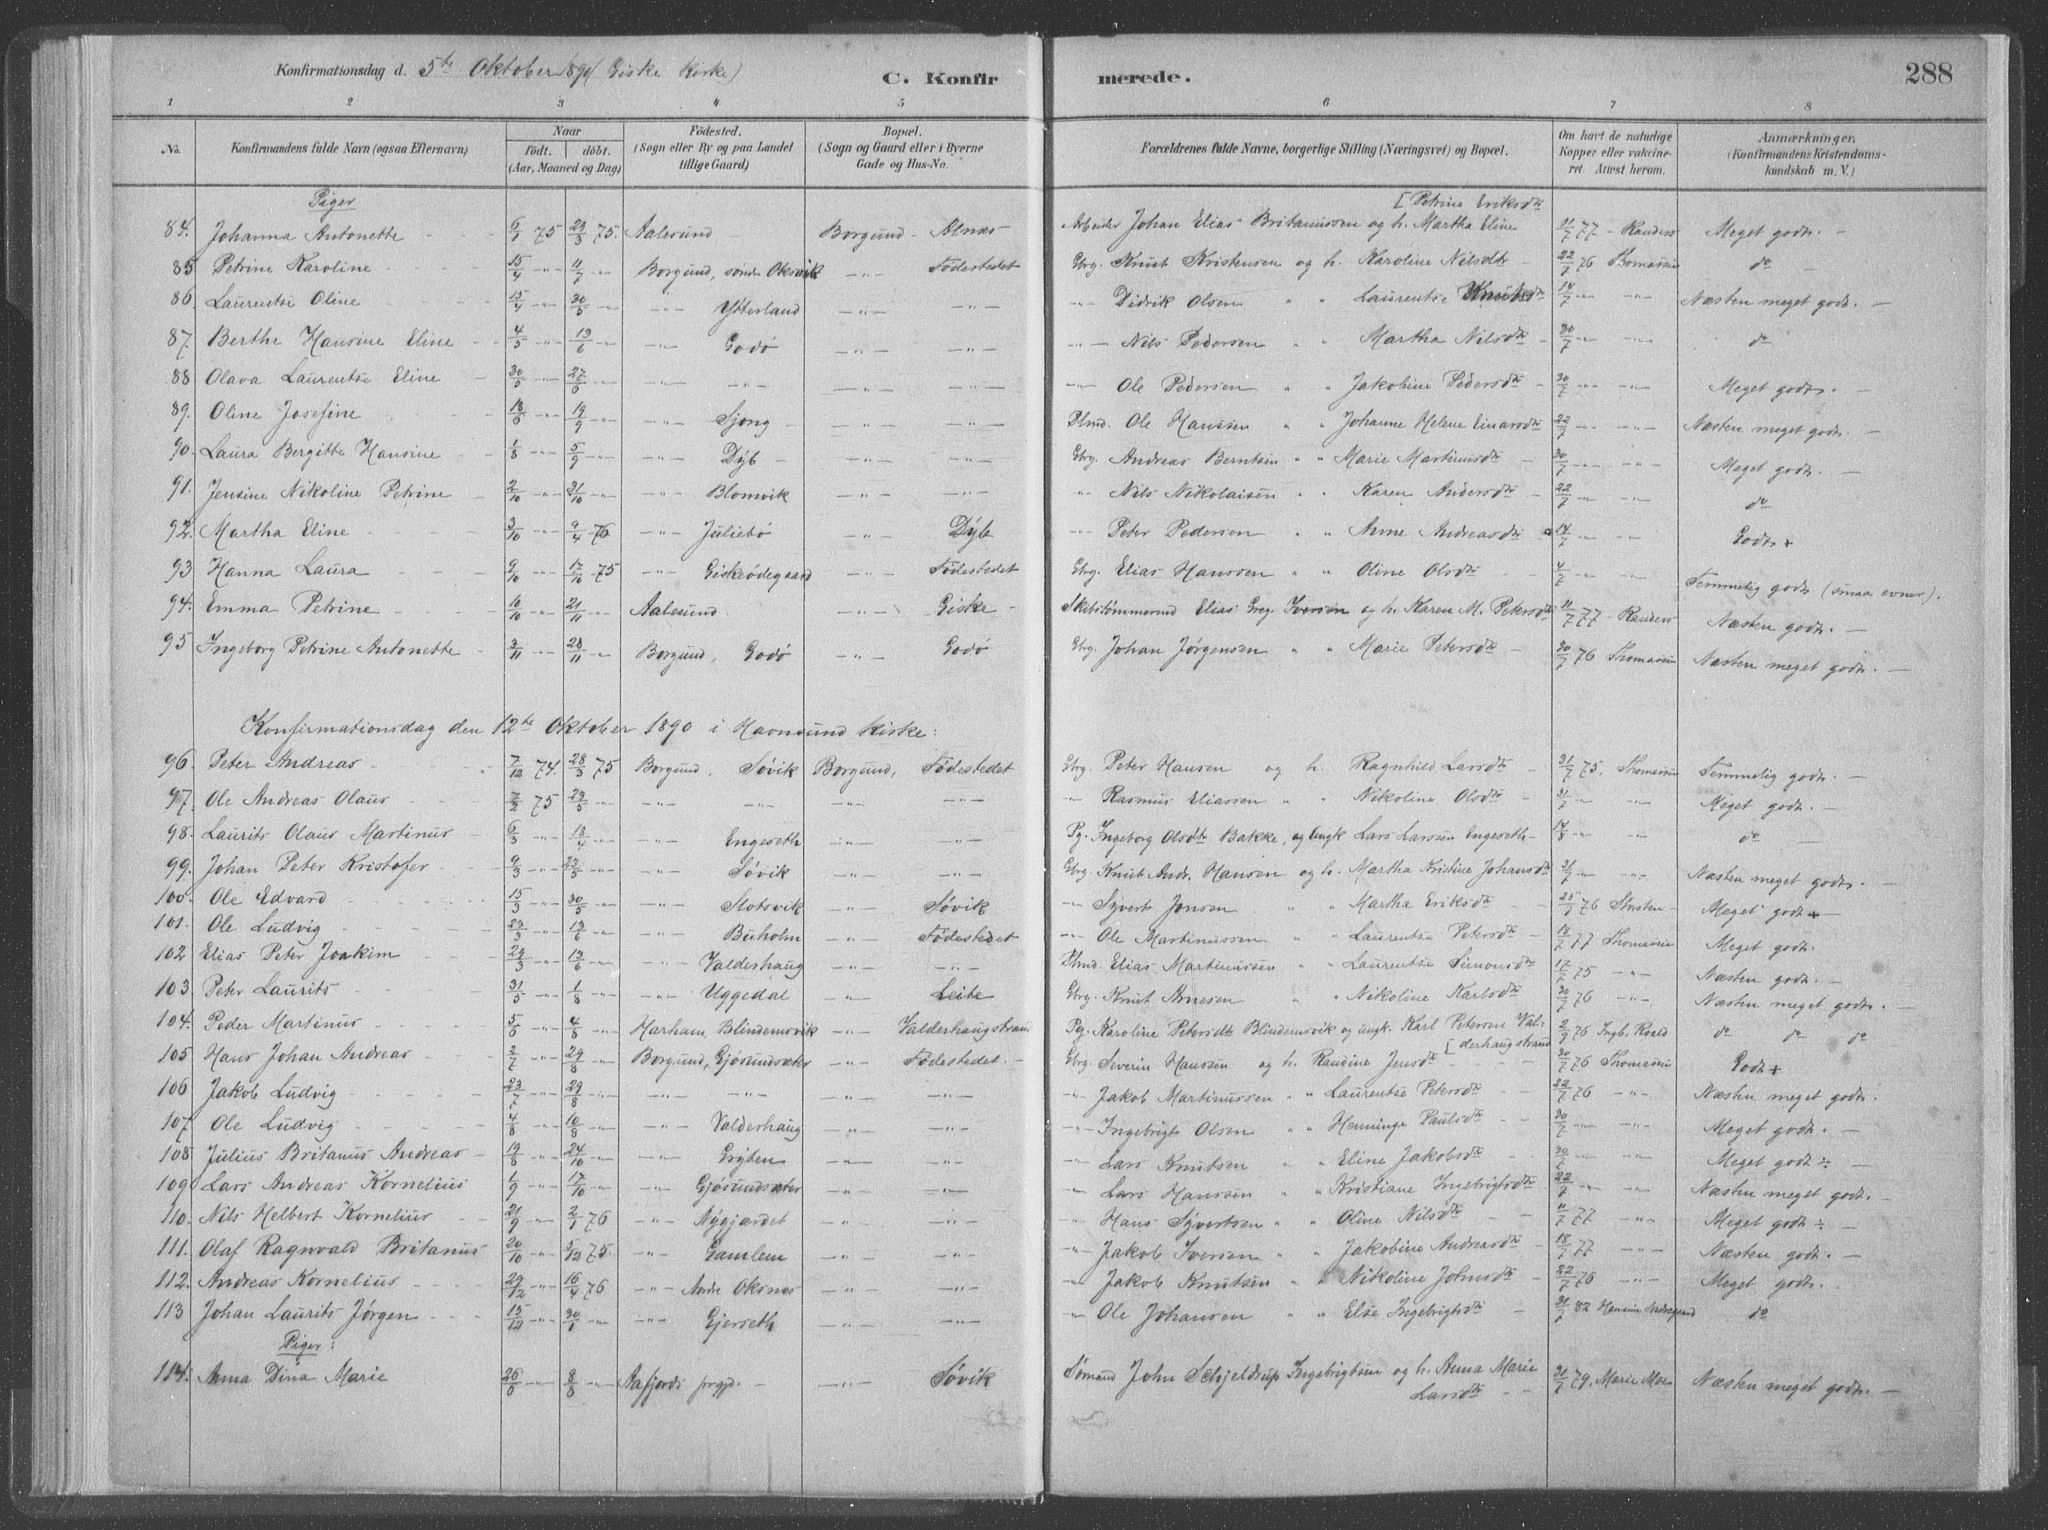 Konfirmationsdag d. 5te Oktober 1890 (Giske Kirke) C. Konfirmerede. 288
1 2 3 4 5 6 7 8
No. Konfirmandens fulde Navn (ogsaa Efternavn) Naar födt. döbt. (Aar, Maaned og Dag) Födested. (Sogn eller By og paa Landet tillige Gaard) Bopæl. (Sogn og Gaard eller i Byerne Gade og Hus-No. Forældrenes fulde Navne, borgerlige Stilling (Næringsvei) og Bopæl. Om havt de naturlige Kopper eller vakcineret. Attest herom. Anmærkninger. (Konfirmandens Kristendomskundskab m. V.)
Piger [Petrine Eriksdtr
84. Johanna Antonette 6/1 75 29/3 75. Aalesund Borgund Alnæs Arbeider Johan Elias Britanussen og h. Martha Eline 11/7 77 Randers Meget godt. —
85 Petrine Karoline 15/4 -"- 11/7 -"- Borgund, söndr Oksvik -"- Födestedet Gbrg. Knut Kristensen og h. Karoline Nilsdtr 22/7 76 Thomassen do —
86 Laurentse Oline 15/4 -"- 30/5 -"- -"- Ytterland -"- -"- " Didrik Olsen " " Laurentse Knutsdtr 14/7 -"- -"- Næsten meget godt. —
87 Berthe Hansine Eline 4/5 -"- 13/6 -"- -"- Godø -"- -"- -"- Nils Pedersen " " Martha Nilsdtr 30/7 -"- -"- do
88 Olava Laurentse Eline 30/5 -"- 27/6 -"- -"- -"- -"- -"- -"- Ole Pedersen " " Jakobine Pedersdtr 30/7 -"- -"- Meget godt. —
89. Oline Josefine 18/6 -"- 19/9 -"- -"- Sjong -"- -"- Plmd. Ole Hanssen " " Johanne Helene Einarsdtr 22/7 -"- -"- Næsten meget godt. —
90. Laura Bergitte Hansine 1/8 -"- 5/9 -"- -"- Dyb -"- -"- Gbrg. Andreas Berntsen " " Marie Martinusdtr 30/7 -"- -"- Meget godt. —
91. Jensine Nikoline Petrine 2/10 -"- 31/10 -"- -"- Blomvik -"- -"- " Nils Nikolaisen " " Karen Andersdtr 22/7 -"- -"- do
92. Martha Eline 3/10 -"- 9/4 76 -"- Juliebø -"- Dyb -"- Peter Pedersen " " Anne Andreasdtr 14/7 -"- -"- Godt +
93 Hanna Laura 9/10 -"- 17/10 75 -"- Giskeödegaard -"- Födestedet Gbrg. Elias Hanssen " " Oline Olsdtr 4/7 -"- -"- Temmelig godt (smaa evner).
94. Emma Petrine 10/10 -"- 21/11 -"- Aalesund -"- Giske Skibstømmermd Elias Greg. Iversen og h. Karen M. Petersdtr 11/7 77 Randers Næsten godt. —
95 Ingeborg Petrine Antonette 3/11 -"- 28/11 -"- Borgund, Godø -"- Godø Gbrg. Johan Jørgensen " " Marie Petersdtr 30/7 76 Thomassen Næsten meget godt. —
Konfirmationsdag den 12te Oktober 1890 i Havnsund Kirke:
96. Peter Andreas 7/12 74. 28/3 75 Borgund, Søvik Borgund, Födestedet Gbrg. Peter Hansen og h. Ragnhild Larsdtr 31/7 75. Thomassen Temmelig godt. —
97. Ole Andreas Olaus 7/3 75 29/5 -"- -"- -"- -"- -"- " Rasmus Eliassen " " Nikoline Olsdtr 31/7 -"- -"- Meget godt. —
98. Laurits Olaus Martinus 6/3 -"- 18/4 -"- -"- Engeseth -"- -"- Pg. Ingeborg Olsdtr Bakke, og Ungk. Lars Larssen Engeseth 14/8 -"- -"- do —
99. Johan Peter Kristofer 9/3 -"- 23/5 -"- -"- Søvik -"- -"- Gbrg. Knut Andr. Hansen og h. Martha Kristine Johansdtr 31/7 -"- -"- Næsten meget godt. —
100. Ole Edvard 15/3 -"- 30/5 -"- -"- Slotsvik -"- Søvik -"- Syvert Jonsen " " Martha Eriksdtr 25/7 76 Meget godt —
101. Ole Ludvig 23/3 -"- 13/6 -"- -"- Buholm -"- Födestedet -"- Ole Martinussen " " Laurentse Petersdtr 18/7 77 Thomassen Meget godt.
102 Elias Peter Joakim 29/3 -"- 13/6 -"- -"- Valderhaug -"- -"- Plmd. Elias Martinussen " " Laurentse Simonsdtr 17/7 75 -"- Næsten godt. —
103. Peter Laurits 31/5 -"- 1/8 -"- -"- Uggedal -"- Leite Gbrg. Knut Arnesen " " Nikoline Karlsdtr 30/7 76 -"- Næsten meget godt. —
104. Peder Martinus 5/6 -"- 4/8 -"- Harham, Blindemsvik -"- Valderhaugstrand Pg. Karoline Petersdtr Blindemsvik og ungk. Karl Petersen Val- 2/9 76 Ingb. Roald do do do
[derhaugstrand
105 Hans Johan Andreas 2/7 -"- 29/8 -"- Borgund, Gjøsundsæter -"- Födestedet. Gbrg. Severin Hanssen og h. Randine Jensdtr 30/7 76 Thomassen Godt +
106 Jakob Ludvig 23/7 -"- 29/8 -"- -"- -"- -"- -"- -"- Jakob Martinussen " " Laurentse Petersdtr 22/7 76 -"- Næsten meget godt.
107 Ole Ludvig 4/8 -"- 10/8 -"- -"- Valderhaug -"- -"- -"- Ingebrigt Olsen " " Henninge Paulsdtr 30/7 -"- -"- Meget godt. —
108 Julius Britanus Andreas 19/8 -"- 24/10 -"- -"- Gryten -"- -"- " Lars Knutsen " " Eline Jakobsdtr 30/7 -"- -"- Meget godt ÷
109 Lars Andreas Kornelius 1/9 -"- 17/10 -"- -"- Gjøsundsæter -"- -"- " Lars Hanssen " " Kristiane Ingebrigtsdtr 22/7 -"- -"- Næsten meget godt. —
110. Nils Helbert Kornelius 21/9 -"- 2/1 76 -"- Nygjærdet -"- -"- " Hans Syvertsen " " Oline Nilsdtr 11/7 77 -"- Meget godt ÷
111. Olaf Ragnvald Britanus 20/10 -"- 5/12 75. -"- Gamlem -"- -"- " Jakob Iversen " " Jakobine Andreasdtr 18/7 77 -"- Næsten godt. —
112. Andreas Kornelius 29/12 -"- 16/4 76 -"- Nordr Oksnæs -"- -"- " Jakob Knutsen " " Nikoline Johnsdtr 22/7 76 -"- Meget godt.
113 Johan Laurits Jørgen 15/12 -"- 30/1 -"- -"- Gjerseth -"- -"- " Ole Johansen " " Else Ingebrigtsdtr 21/7 82 do
Piger:
114. Anna Dina Marie 26/6 -"- 8/8 -"- Aafjords prgjd. -"- Søvik Sømand John Schjeldrup Ingebrigtsen og h. Anna Marie 31/7 79. Marie Moe Næsten meget godt. —
Larsdtr